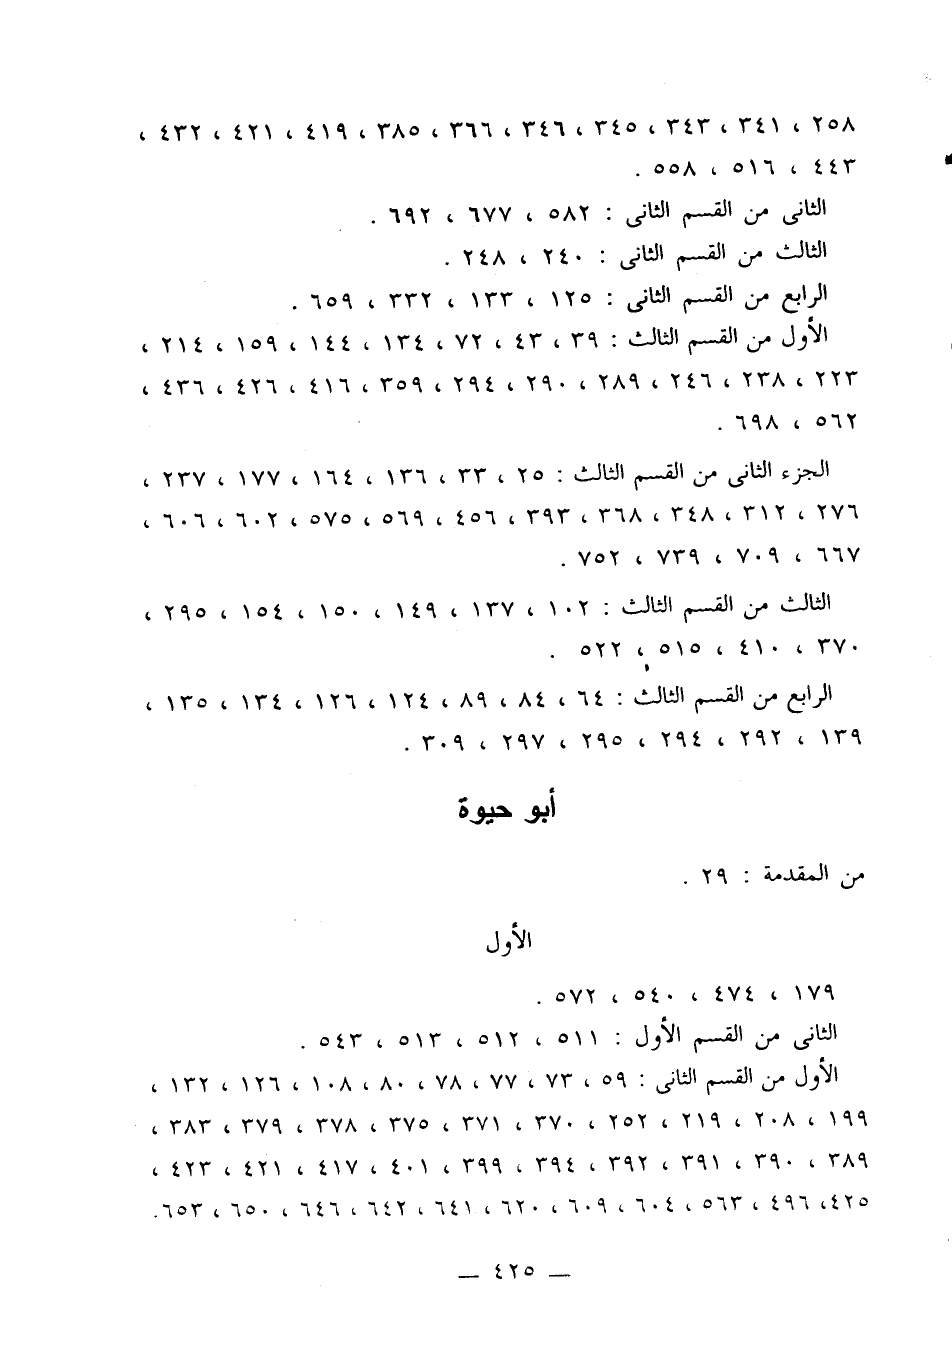 ٢٥٨ ، ٣٤١ ، ٣٤٣ ، ٣٤٥ ، ٣٤٦ ، ٣٦٦ ، ٣٨٥ ، ٤١٩ ، ٤٢١ ، ٤٣٢ ،
٤٤٣ ، ٥١٦ ، ٥٥٨ .
الثانى من القسم الثانى : ٥٨٢ ، ٦٧٧ ، ٦٩٢ .
الثالث من القسم الثانى : ٢٤٠ ، ٢٤٨ .
الرابع من القسم الثانى : ١٢٥ ، ١٣٣ ، ٣٣٢ ، ٦٥٩ .
الأول من القسم الثالث : ٣٩ ، ٤٣ ، ٧٢ ، ١٣٤ ، ١٤٤ ، ١٥٩ ، ٢١٤ ،
٢٢٣ ، ٢٣٨ ، ٢٤٦ ، ٢٨٩ ، ٢٩٠ ، ٢٩٤ ، ٣٥٩ ، ٤١٦ ، ٤٢٦ ، ٤٣٦ ،
٥٦٢ ، ٦٩٨ .
الجزء الثانى من القسم الثالث : ٢٥ ، ٣٣ ، ١٣٦ ، ١٦٤ ، ١٧٧ ، ٢٣٧ ،
٢٧٦ ، ٣١٢ ، ٣٤٨ ، ٣٦٨ ، ٣٩٣ ، ٤٥٦ ، ٥٦٩ ، ٥٧٥ ، ٦٠٢ ، ٦٠٦ ،
٦٦٧ ، ٧٠٩ ، ٧٣٩ ، ٧٥٢ .
الثالث من القسم الثالث : ١٠٢ ، ١٣٧ ، ١٤٩ ، ١٥٠ ، ١٥٤ ، ٢٩٥ ،
٣٧٠ ، ٤١٠ ، ٥١٥ ، ٥٢٢ .
الرابع من القسم الثالث : ٦٤ ، ٨٤ ، ٨٩ ، ١٢٤ ، ١٢٦ ، ١٣٤ ، ١٣٥ ،
١٣٩ ، ٢٩٢ ، ٢٩٤ ، ٢٩٥ ، ٢٩٧ ، ٣٠٩ .
أبو حيوة
من المقدمة : ٢٩ .
الأول
١٧٩ ، ٤٧٤ ، ٥٤٠ ، ٥٧٢ .
الثانى من القسم الأول : ٥١١ ، ٥١٢ ، ٥١٣ ، ٥٤٣ .
الأول من القسم الثانى : ٥٩ ، ٧٣ ، ٧٧ ، ٧٨ ، ٨٠ ، ١٠٨ ، ١٢٦ ، ١٣٢ ،
١٩٩ ، ٢٠٨ ، ٢١٩ ، ٢٥٢ ، ٣٧٠ ، ٣٧١ ، ٣٧٥ ، ٣٧٨ ، ٣٧٩ ، ٣٨٣ ،
٣٨٩ ، ٣٩٠ ، ٣٩١ ، ٣٩٢ ، ٣٩٤ ، ٣٩٩ ، ٤٠١ ، ٤١٧ ، ٤٢١ ، ٤٢٣ ،
٤٢٥ ، ٤٩٦ ، ٥٦٣ ، ٦٠٤ ، ٦٠٩ ، ٦٢٠ ، ٦٤١ ، ٦٤٢ ، ٦٤٦ ، ٦٥٠ ، ٦٥٣ .
— ٤٢٥ —